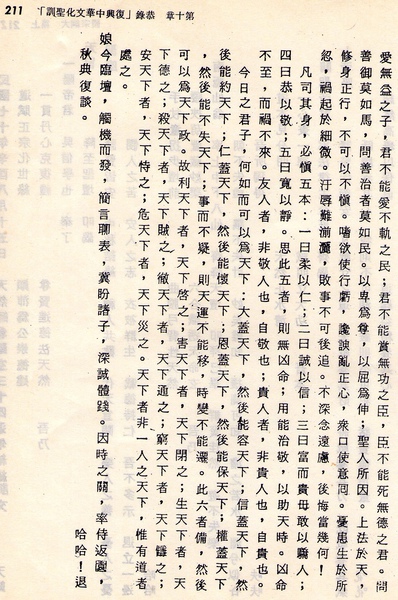 211 「訓聖化文華中興復」錄恭 章十第
愛無益之子，君不能愛不軌之民；君不能賞無功之臣，臣不能死無德之君。問
善御莫如馬，問善治者莫如民。以卑為尊，以屈為伸；聖人所因。上法於天，
修身正行，不可以不慎。嗜欲使行虧，讒諛亂正心，衆口使意囘。憂患生於所
忽，禍起於細微。汙辱難湔灑，敗事不可後追。不深念遠慮，後悔當幾何！
凡司其身，必愼五本：一曰柔以仁；二曰誠以信；三曰富而貴毋敢以驕人；
四曰恭以敬；五曰寬以靜。思此五者，則無凶命；用能治敬，以助天時。凶命
不至，而禍不來。友人者，非敬人也，自敬也；貴人者，非貴人也，自貴也。
今日之君子，何如而可以為天下：大蓋天下，然後能容天下；信蓋天下，然
後能約天下；仁蓋天下，然後能懷天下；恩蓋天下，然後能保天下；權蓋天下
，然後能不失天下；事而不疑，則天運不能移，時變不能遷。此六者備，然後
可以為天下政。故利天下者，天下啓之；害天下者，天下閉之；生天下者，天
下德之；殺天下者，天下賊之；徹天下者，天下通之；窮天下者，天下讎之；
安天下者，天下恃之；危天下者，天下災之。天下者非一人之天下，惟有道者
處之。
娘今臨壇，觸機而發，簡言聊表，冀盼諸子，深誠體踐。因時之關，率侍返園，
秋典復談。
哈哈！退